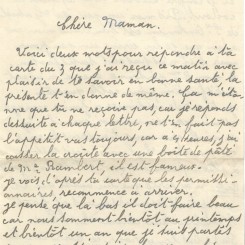 Chère Maman.
Voici deux mots pour répondre à ta
carte du 3 que j'ai reçue ce matin avec
plaisir de te savoir en bonne santé, la
présente t'en donne de même. Ça m'é-
tonne que tu ne reçoive pas, car je réponds
de suite à chaque lettre, ne t'en fait pas
l'appétit va toujours, car à 4 heures, j'ai
casser la croûte avec une boîte de pâté
de Mme Humbert, et est fameux.
je vois d'après ta carte que les permissi
onnaires recommence à arriver.
je pense que la bas il doit faire beau
car nous sommes bientôt au printemps
et bientôt un an que je suis partis